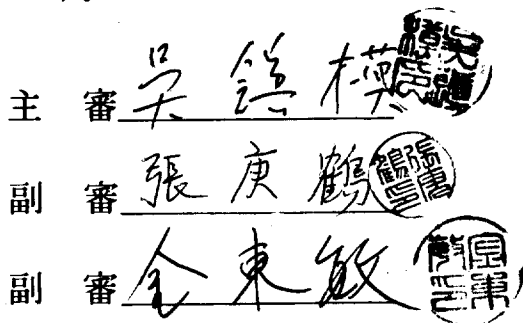 主 審 吳 鎮 模
副 審 張 庚 鶴
副 審 金 東 敏